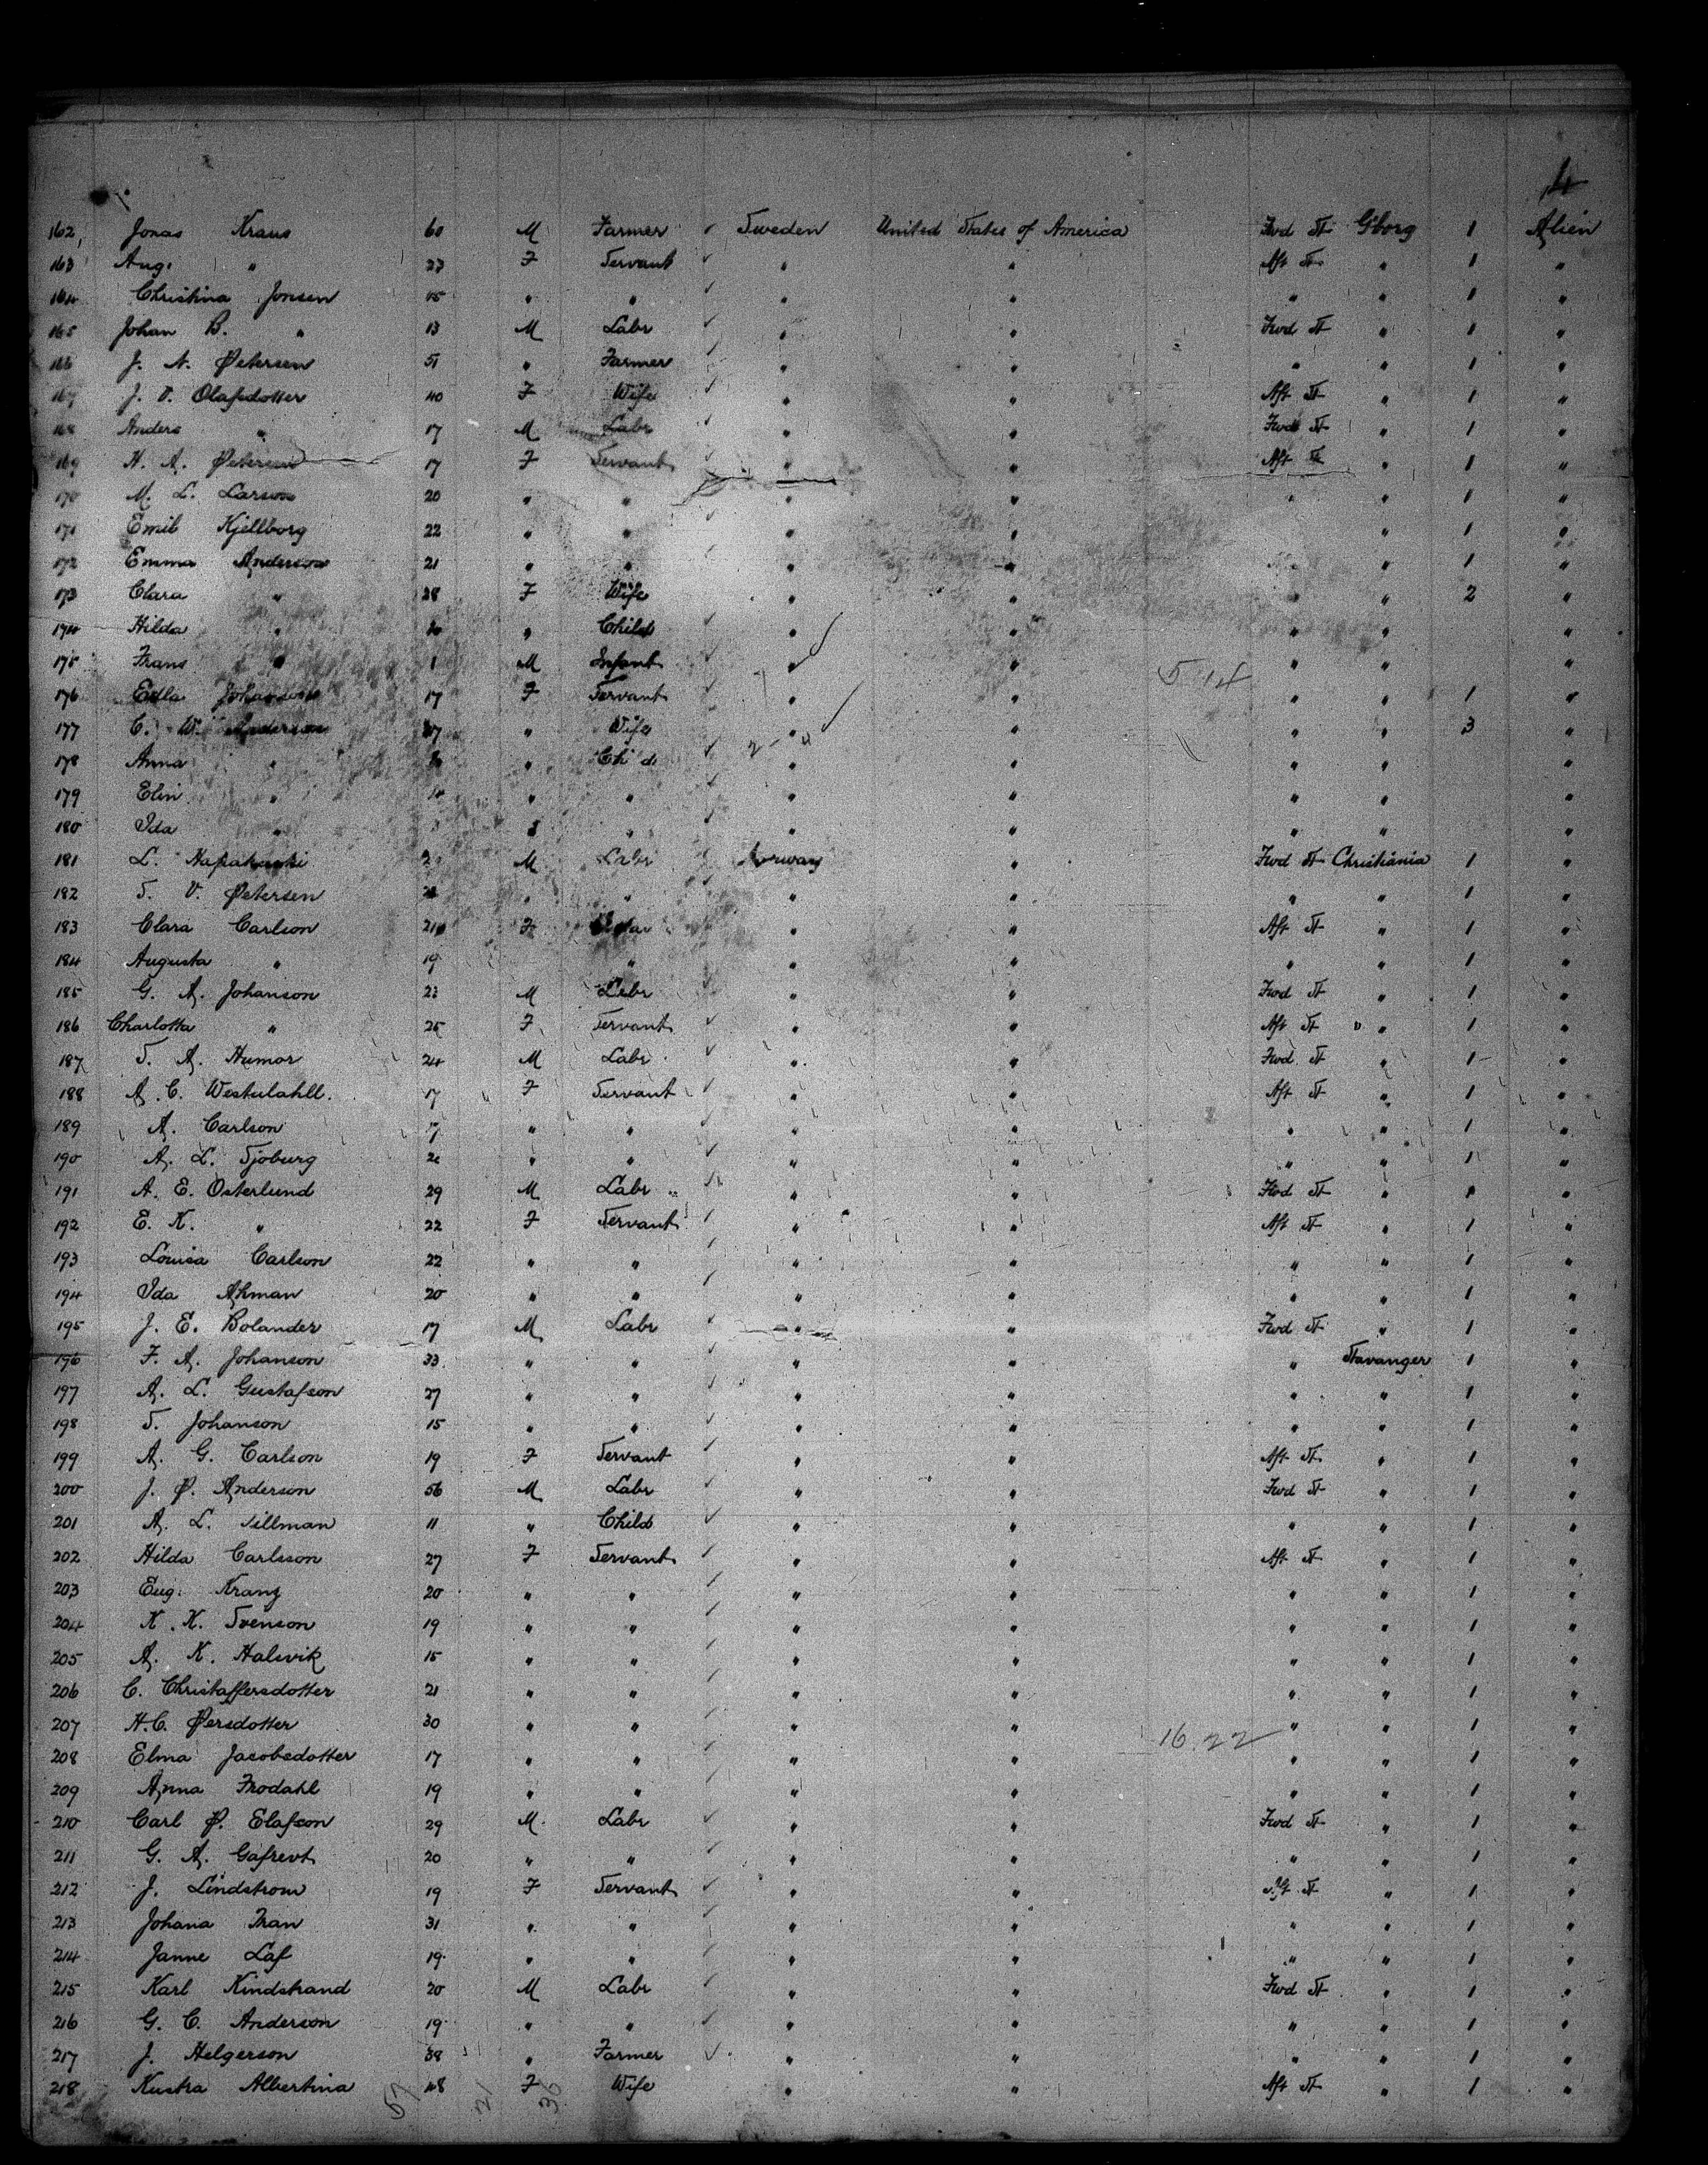 4
162 Jonas Kraus 60 M Farmer ✓ Sweden United States of America Fwd St Gborg 1 Alien
163 Aug. " 23 F Servant ✓ " " Aft St " 1 "
164 Christina Jonsen 15 " " ✓ " " " " 1 "
165 Johan B. " 13 M Labr ✓ " " Fwd St " 1 "
166 J. N. Petersen 51 " Farmer ✓ " " " " 1 "
167 J. V. Olafsdotter 40 F Wife ✓ " " Aft St " 1 "
168 Anders " 17 M Labr ✓ " " Fwd St " 1 "
169 H. A. Petersen 17 F Servant ✓ " " Aft St " 1 "
170 M. L. Larson 20 " " " " " " 1 "
171 Emil Kjellborg 22 " " ✓ " " " 1 "
172 Emma Anderson 21 " " ✓ " " " " 1 "
173 Clara " 28 F Wife " " " " 2 "
174 Hilda " " Child ✓ " " " " "
175 Frans " 1 M Infant ✓ " " " " "
5 14
176 Edla Johanson 17 F Servant ✓ " " " " 1 "
177 C. W. Anderson 27 " Wife " " " " 3 "
178 Anna " " Child ✓ " " " " "
179 Elin " " " ✓ " " " " "
180 Ida " " " ✓ " " " " "
181 L. M Labr ✓ Norway " Fwd St Christiania 1 "
182 S. V. Petersen " " ✓ " " " " 1 "
183 Clara Carlson 21 F " " Aft St " 1 "
184 Augusta " 19 " " " " " 1 "
185 G. A. Johanson 23 M Labr ✓ " " Fwd St " 1 "
186 Charlotta " 25 F Servant ✓ " " Aft St " 1 "
187 S. A. Humor 24 M Labr ✓ " " Fwd St " 1 "
188 A. C. Westulahll. 17 F Servant ✓ " " Aft St " 1 "
189 A. Carlson 17 " " ✓ " " " " 1 "
190 A. L. Sjoburg " " ✓ " " " " 1 "
191 A. E. Osterlund 29 M Labr ✓ " " Fwd St " 1 "
192 E. K. " 22 F Servant ✓ " " Aft St " 1 "
193 Louisa Carlson 22 " " ✓ " " " " 1 "
194 Ida Ahman 20 " " ✓ " " " " 1 "
195 J. E. Bolander 17 M Labr ✓ " " Fwd St " 1 "
196 F. A. Johanson 33 " " ✓ " " " Stavanger 1 "
197 A. L. Gustafson 27 " " ✓ " " " " 1 "
198 S. Johanson 15 " " ✓ " " " " 1 "
199 A. G. Carlson 19 F Servant ✓ " " Aft St " 1 "
200 J. P. Anderson 56 M Labr ✓ " " Fwd St " 1 "
201 A. L. Sillman 11 " Child ✓ " " " " 1 "
202 Hilda Carlsson 27 F Servant ✓ " " Aft St " 1 "
203 Eug. Kranz 20 " " ✓ " " " " 1 "
204 K. K. Svenson 19 " " ✓ " " " " 1 "
205 A. K. Halsvik 15 " " ✓ " " " " 1 "
206 C. Christaffersdotter 21 " " ✓ " " " " 1 "
207 H. C. Persdotter 30 " " ✓ " " " " 1 "
16.22
208 Elma Jacobsdotter 17 " " ✓ " " " " 1 "
209 Anna Frodahl 19 " " ✓ " " " " 1 "
210 Carl P. Elafson 29 M Labr ✓ " " Fwd St " 1 "
211 G. A. Gafrevt 20 " " ✓ " " " " 1 "
212 J. Lindstrom 19 F Servant ✓ " " Aft St " 1 "
213 Johana Tran 31 " " ✓ " " " " 1 "
214 Janne Laf 19 " " ✓ " " " " 1 "
215 Karl Kindstrand 20 M Labr ✓ " " Fwd St " 1 "
216 G. C. Anderson 19 " " ✓ " " " " 1 "
217 J. Helgerson 38 " Farmer ✓ " " " " 1 "
218 Kustra Albertina 48 F Wife " " Aft St " 1 "
57 21 36